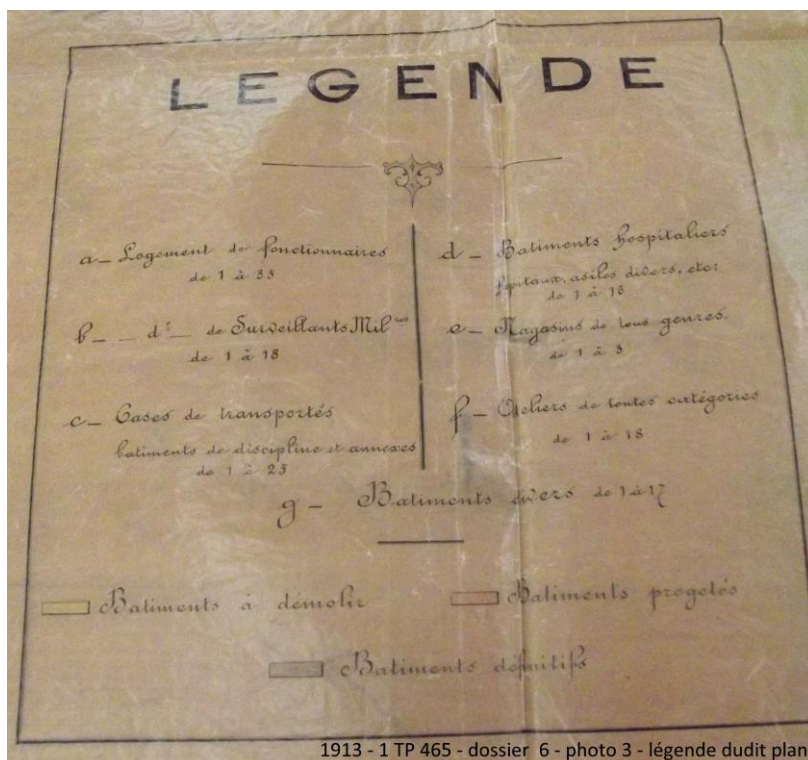 LEGENDE
a_ Logement de fonctionnaires
de 1 à 33
b_ _ d°_ de Surveillants Mil res
de 1 à 18
c_ Cases de transportés
batiments de discipline et annexes
de 1 à 25
d_ Batiments hospitaliers
hopitaux, asiles divers, etc:
de 1 à 13
e_ Magasins de tous genres.
de 1 à 3
f_ Ateliers de toutes catégories
de 1 à 18
g_ Batiments divers de 1 à 17
Batiments à démolir
Batiments progetés
Batiments définitifs
1913 - 1 TP 465 - dossier 6 - photo 3 - légende dudit plan